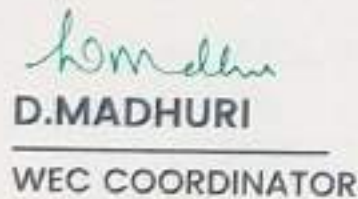 D.MADHURI
WEC COORDINATOR